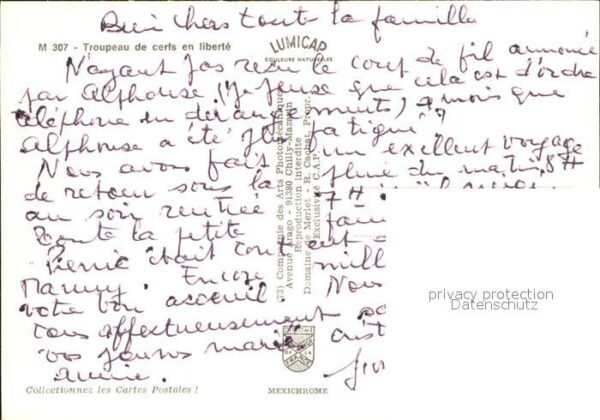 Bien chers toute la famille
M 307 - Troupeau de cerfs en liberté
LUMICAP
COULEURS NATURELLES
N'ayant pas reçu le coup de fil annoncé
par Alphonse (je pense que cela est d'ordre
téléphone ou dérangements) à mois que
Alphonse a été plus fatigué
Nous avons fait un excellent voyage
de retour sous la pluie du matin 8 H
au soir rentrée 7 H
Toute la petite fam
Pierre était cont
Manny. Encore mill
votre bon accueil. Nous
tous affectueusement
vos jeunes mariés
Annie.
(73) Compagnie des Arts Photomécaniques
Avenue Arago - 91380 Chilly-Mazarin
Reproduction Interdite
Domaine de Merlet - R. Cachat, Propr.
Exclusivité C.A.P.
privacy protection
Datenschutz
Collectionnez les Cartes Postales !
MEXICHROME